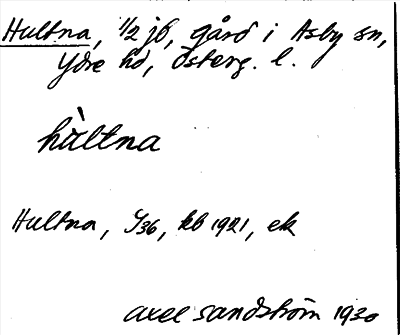 Hultna, 1/2 jb, gård i Asby sn,
Ydre hd, Österg. l.
hùltna
Hultna, Y36, kb 1921, ek
Axel Sandström 1930